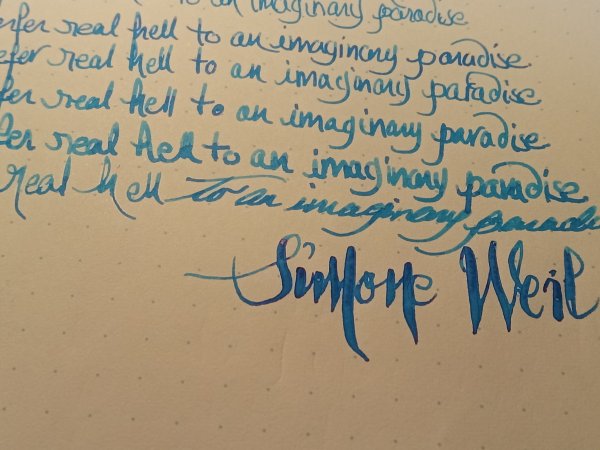 to an imaginary paradise
efer real hell to an imaginary paradise
efer real hell to an imaginary paradise
fer real hell to an imaginary paradise
fer real hell to an imaginary paradise
real hell to an imaginary paradise
Simone Weil